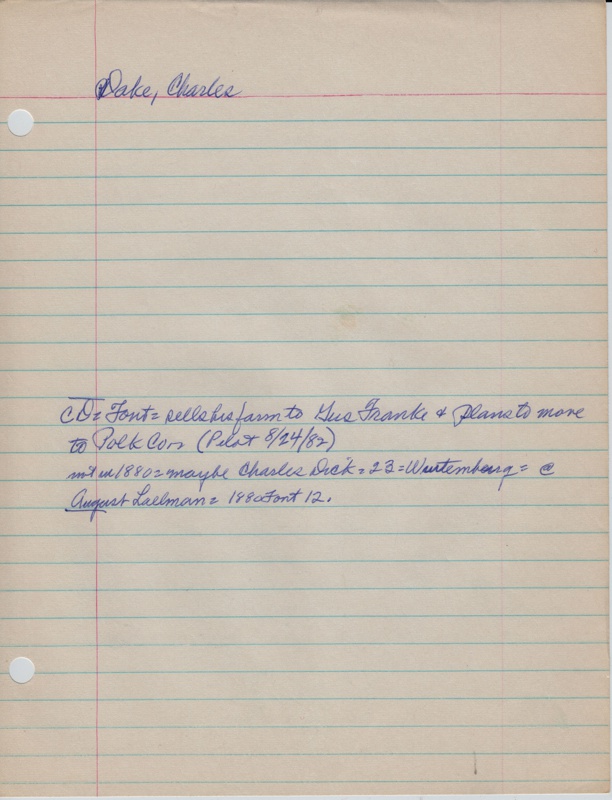 Dake, Charles
CD = Font = sells his farm to Gus Franke & plans to move
to Polk Co = (Pilot 8/24/82)
not in 1880 = maybe Charles Dick = 23 = Wurtemberg = @
August Laelman = 1880 Font 12.